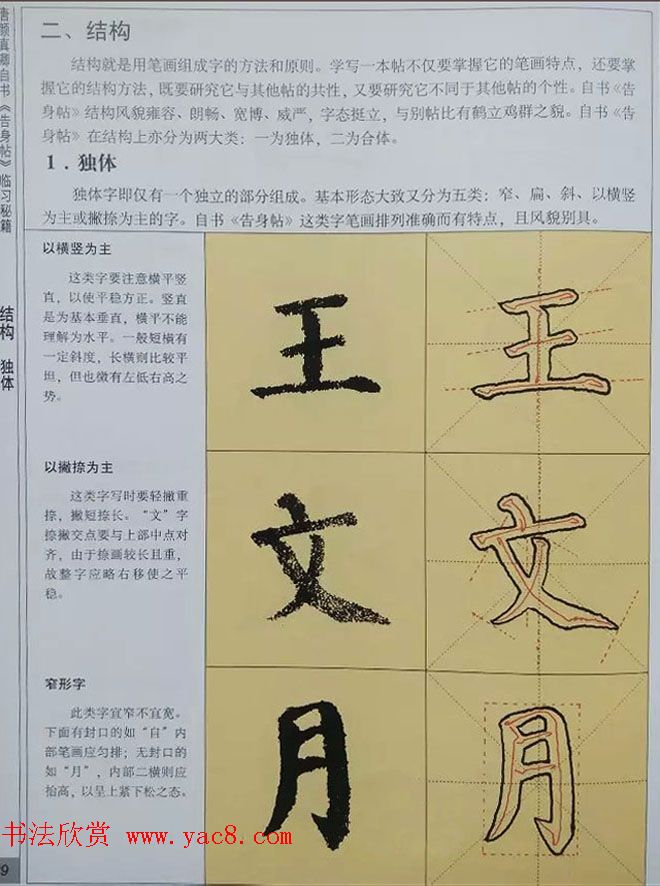 唐颜真卿自书《告身帖》临习秘籍
结构 独体
二、结构
结构就是用笔画组成字的方法和原则。学写一本帖不仅要掌握它的笔画特点，还要掌
握它的结构方法，既要研究它与其他帖的共性，又要研究它不同于其他帖的个性。自书《告
身帖》结构风貌雍容、朗畅、宽博、威严，字态挺立，与别帖比有鹤立鸡群之貌。自书《告
身帖》在结构上亦分为两大类：一为独体，二为合体。
1．独体
独体字即仅有一个独立的部分组成。基本形态大致又分为五类：窄、扁、斜、以横竖
为主或撇捺为主的字。自书《告身帖》这类字笔画排列准确而有特点，且风貌别具。
以横竖为主
这类字要注意横平竖
直，以使平稳方正。竖直
是为基本垂直，横平不能
理解为水平。一般短横有
一定斜度，长横则比较平
坦，但也微有左低右高之
势。
王 王
以撇捺为主
这类字写时要轻撇重
捺，撇短捺长。“文”字
捺撇交点要与上部中点对
齐，由于捺画较长且重，
故整字应略右移使之平
稳。
文 文
窄形字
此类字宜窄不宜宽。
下面有封口的如“自”内
部笔画应匀排；无封口的
如“月”，内部二横则应
抬高，以呈上紧下松之态。
月 月
书法欣赏 www.yac8.com
9